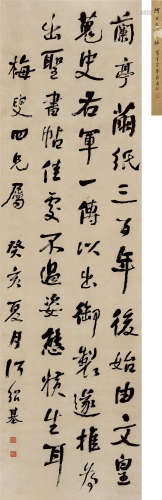 蘭亭繭紙三百年後始由文皇
蒐史右軍一傳以出御製遂推為
出聖書帖佳處不過姿態橫生耳
梅叟四兄屬 癸亥夏月何紹基